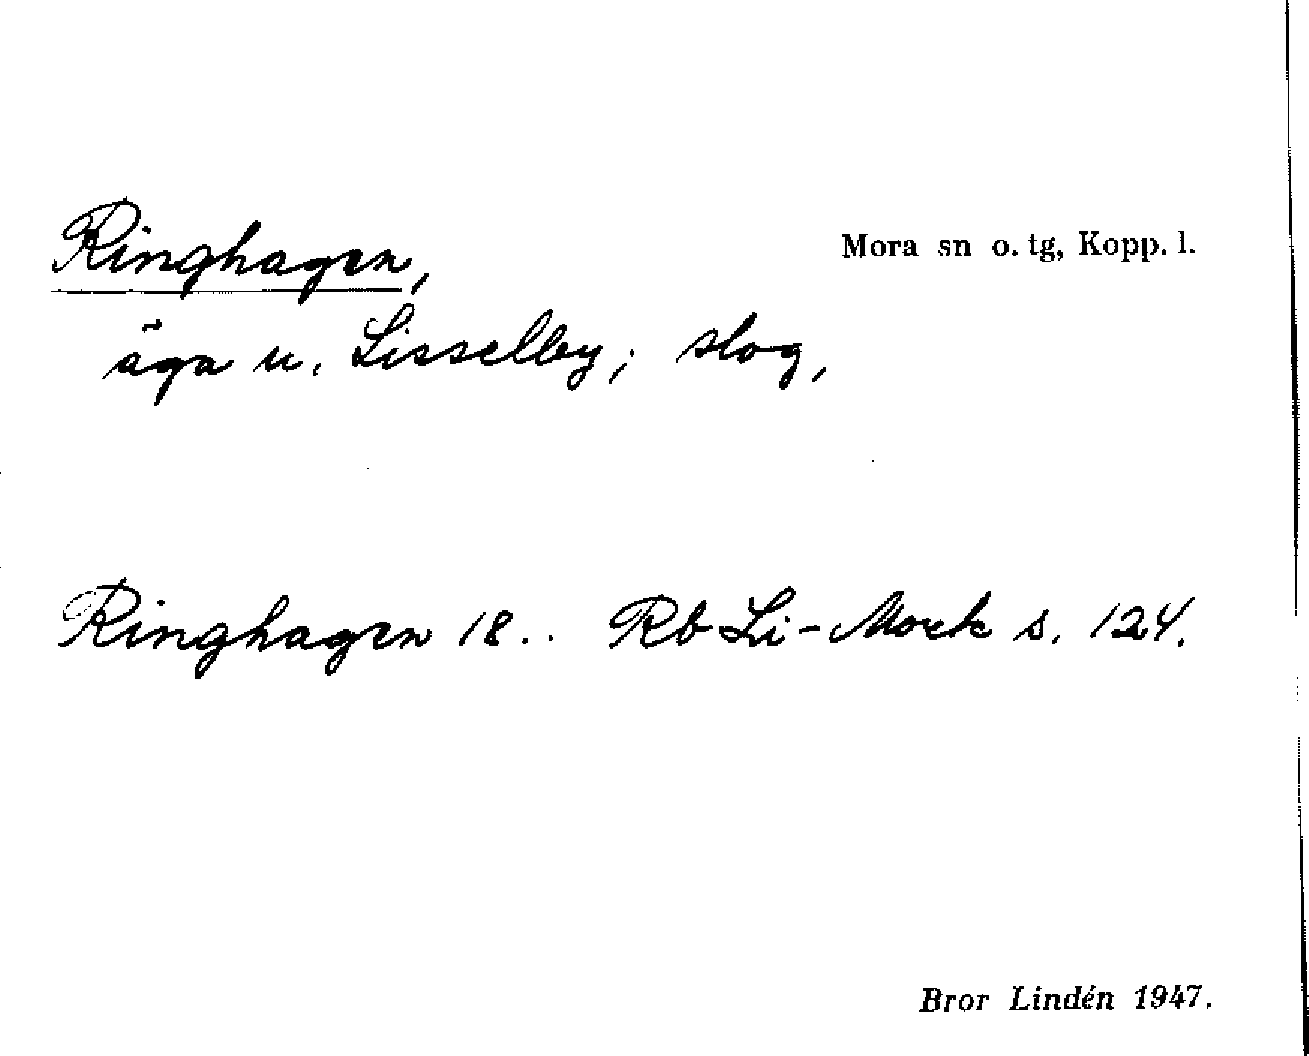 Ringhagen,
Mora sn o. tg, Kopp. l.
äga u. Lisselby; slog,
Ringhagen 18.. Rb Li-Mork s. 124.
Bror Lindén 1947.